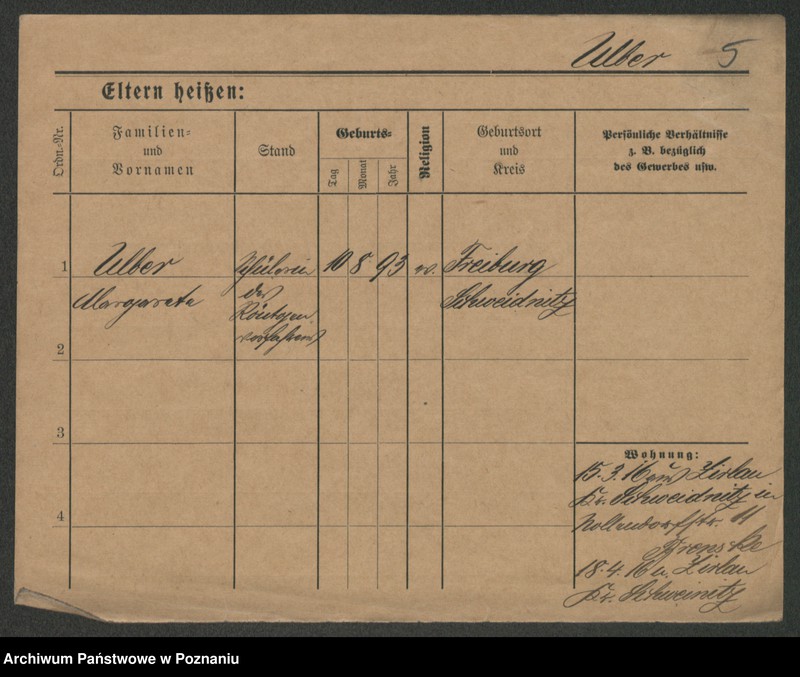 Ulber 5
Eltern heißen:
Ordn.=Nr.
Familien=
und
Vornamen
Stand
Geburts=
Tag
Monat
Jahr
Religion
Geburtsort
und
Kreis
Persönliche Verhältnisse
z. B. bezüglich
des Gewerbes usw.
1 Ulber Schülerin 10 8 93 ev. Freiburg
Margarete des Schweidnitz
Röntgen
verfahrens
2
3
4
Wohnung:
15.3.16 aus Zirlau
Kr. Schweidnitz in
Nollendorfstr. 11
18.4.16 n. Zirlau
Kr. Schweinitz
Archiwum Państwowe w Poznaniu